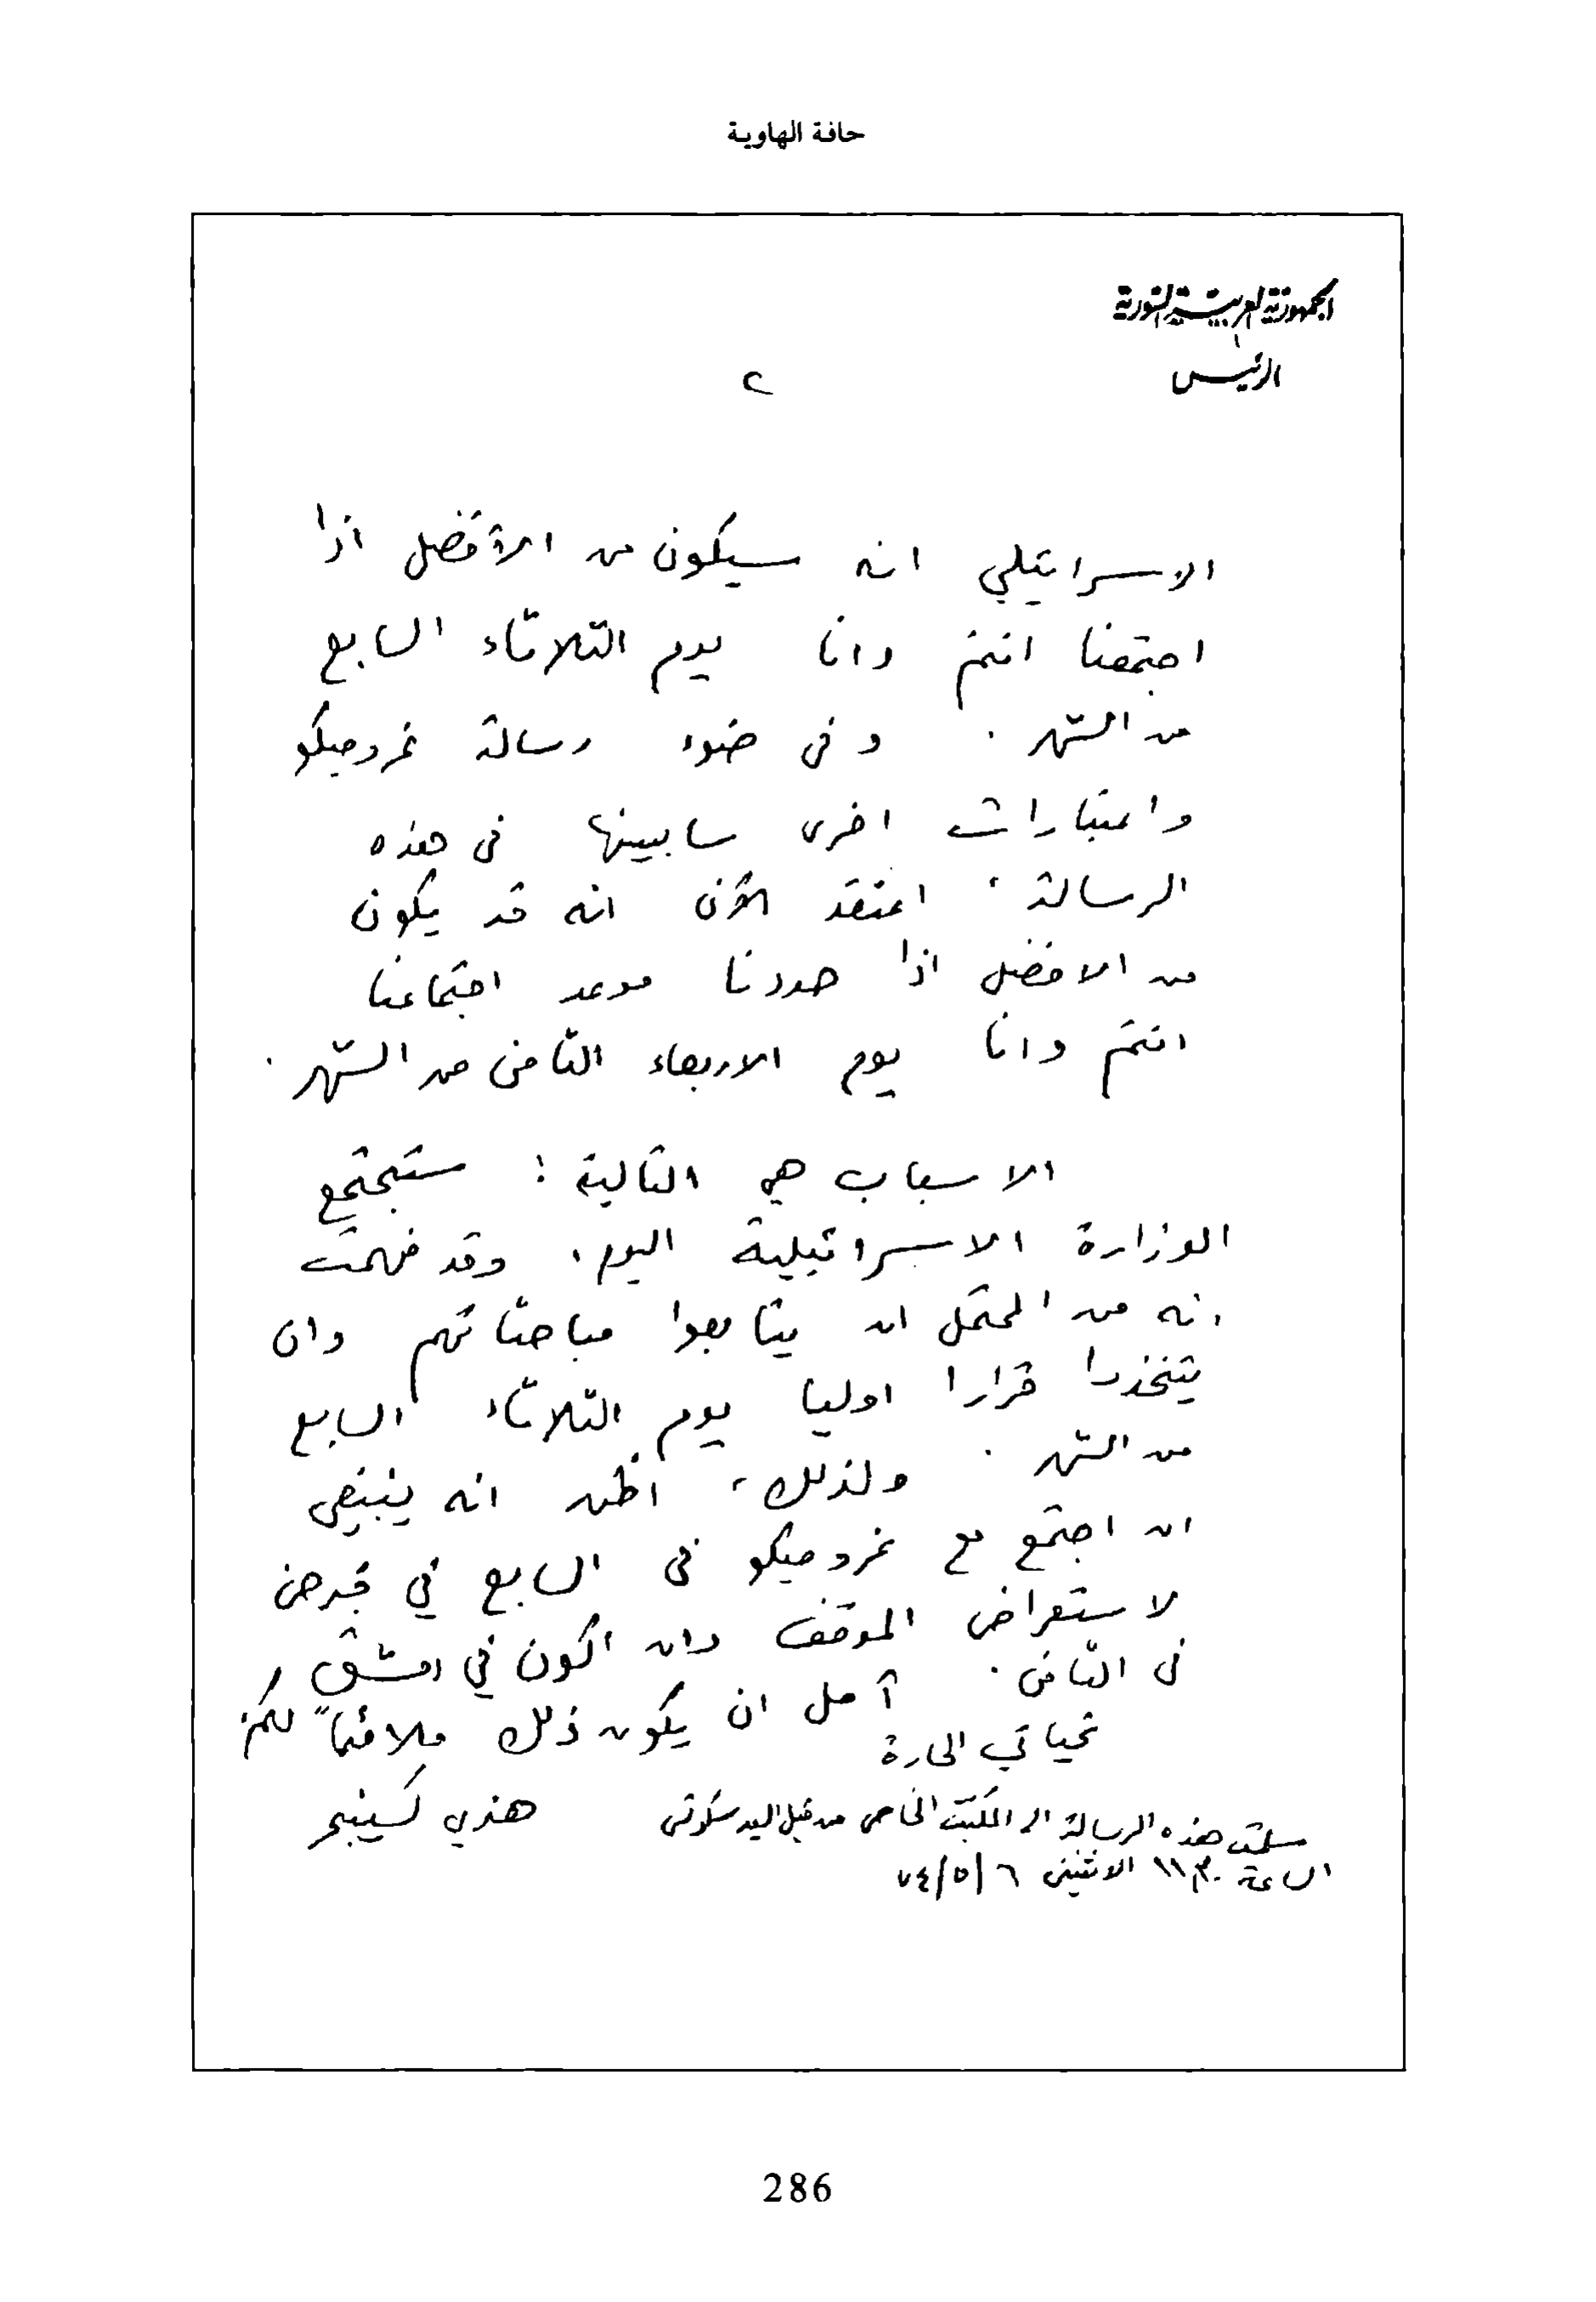 حافة الهاوية
الجمهورية العربية السورية
الرئيس
٢
الاسرائيلي انه سيكون من الأفضل اذا
اجتمعنا انتم وانا يوم الثلاثاء السابع
من الشهر . وفي ضوء رسالة غروميكو
واعتبارات اخرى سابينها في هذه
الرسالة ، اعتقد الآن انه قد يكون
من الافضل اذا حددنا موعد اجتماعنا
انتم وانا يوم الاربعاء الثامن من الشهر .
الاسباب هي التالية : ستجتمع
الوزارة الاسرائيلية اليوم ، وقد فهمت
انه من المحتمل ان يتابعوا مباحثاتهم وان
يتخذوا قرارا اوليا يوم الثلاثاء السابع
من الشهر . ولذلك ، اظن انه ينبغي
ان اجتمع مع غروميكو في السابع في قبرص
لاستعراض الموقف وان اكون في دمشق
في الثامن . آمل ان يكون ذلك ملائماً لكم .
تحياتي الحارة
هنري كسينجر
سلمت هذه الرسالة الى المكتب الخاص من قبل السيد سكوتس
الساعة ١١,٣٠ الاثنين ٧٤/٥/٦
286